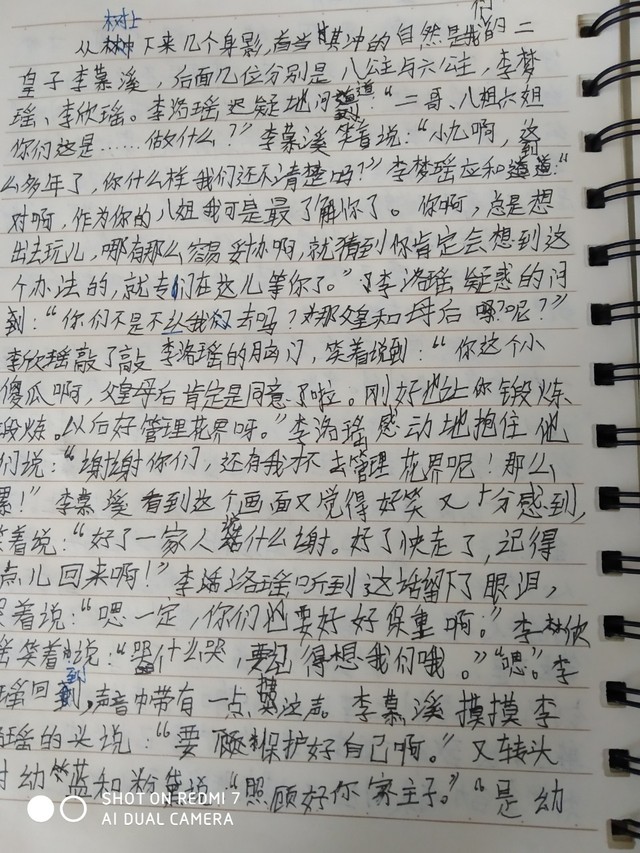 树上
从树下来几个身影,首当其冲的自然是我们的二
皇子李慕溪,后面几位分别是八公主与六公主,李梦
瑶、李欣瑶。李洛瑶迟疑地问到:“二哥、八姐六姐
你们这是……做什么?”李慕溪笑着说:“小九啊,这
么多年了,你什么样我们还不清楚吗?”李梦瑶应和道:“
对啊,作为你的八姐我可是最了解你了。你啊,总是想
出去玩儿,哪有那么容易办啊,就猜到你肯定会想到这
个办法的,就专门在这儿等你了。”李洛瑶疑惑的问
到:“你们不是不让我们去吗?那父皇和母后呢?”
李欣瑶敲了敲李洛瑶的脑门,笑着说到:“你这个小
傻瓜啊,父皇母后肯定是同意了啦。刚好也让你锻炼
锻炼。以后好管理花界呀。”李洛瑶感动地抱住他
们说:“谢谢你们,还有我才不去管理花界呢!那么
累!”李慕溪看到这个画面又觉得好笑又十分感到,
笑着说:“好了一家人说什么谢。好了快走了,记得
点儿回来啊!”李洛瑶听到这话留下了眼泪,
着说:“嗯一定,你们也要好好保重啊。”李欣
瑶笑着说:“哭什么哭,要记得想我们哦。”“嗯。”李
瑶回到,声音中带有一点哭泣声。李慕溪摸摸李
瑶的头说:“要保护好自己啊。”又转头
对幼蓝和粉黛说:“照顾好你家主子。”“是幼
SHOT ON REDMI 7
AI DUAL CAMERA